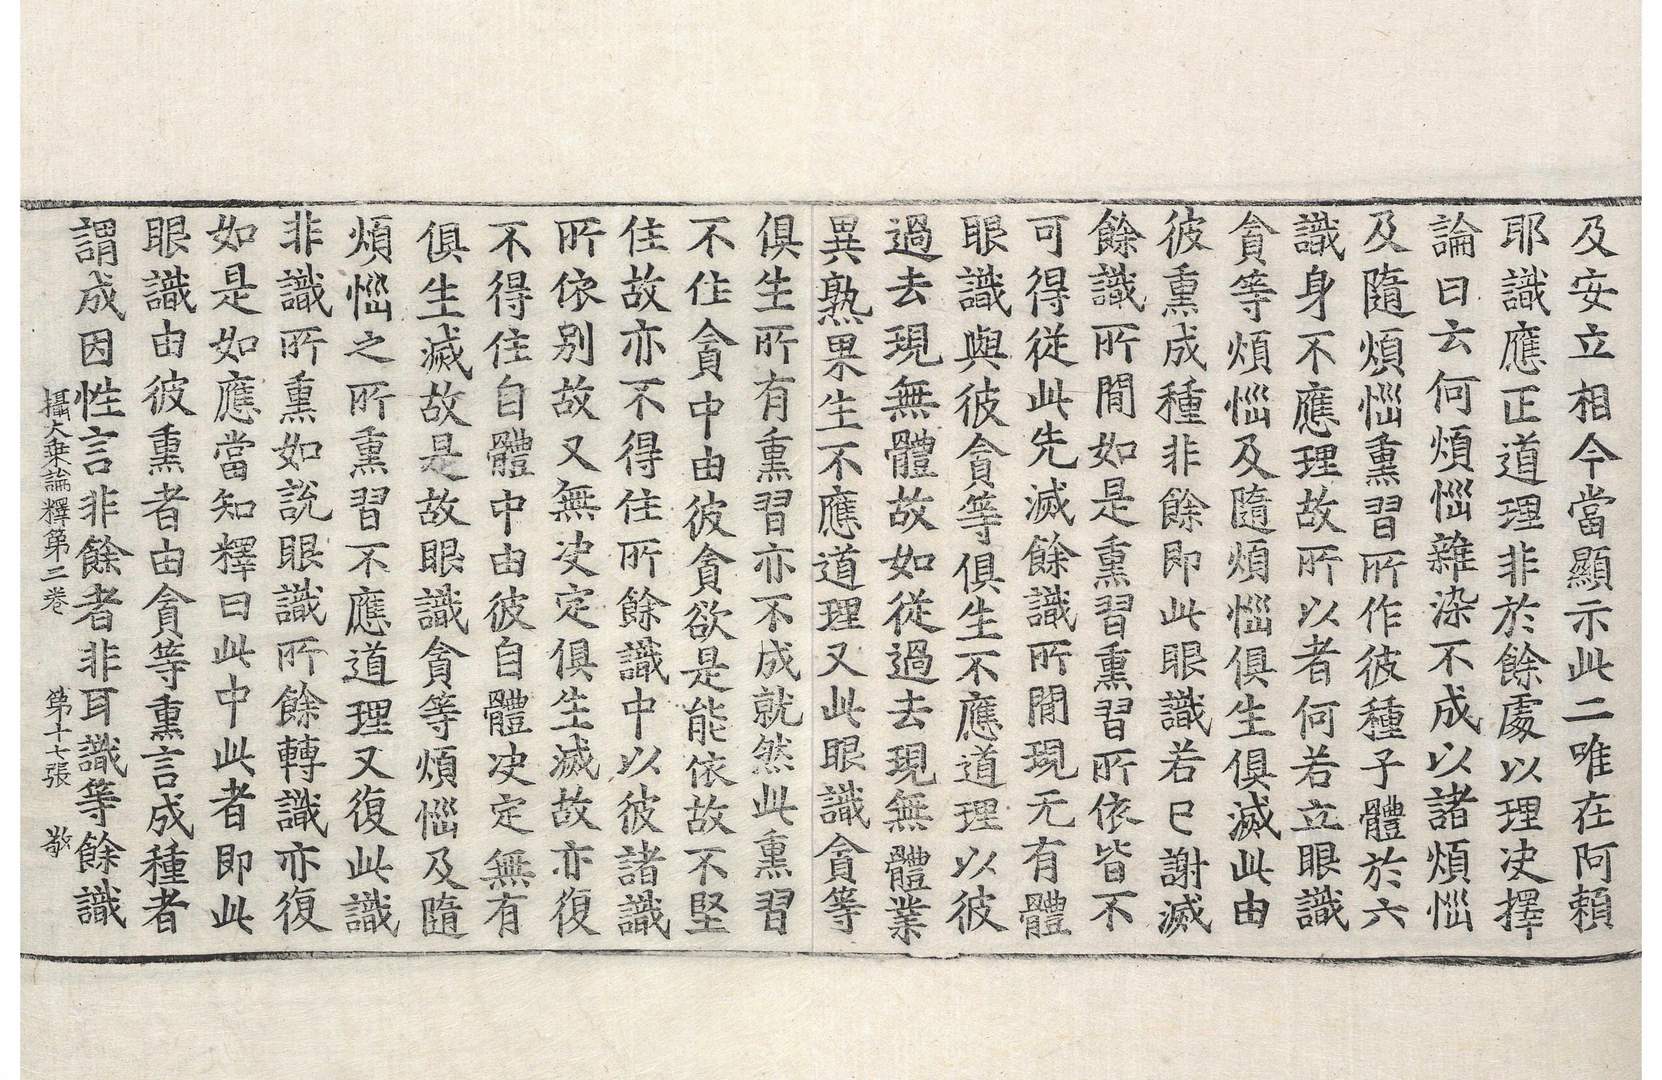 及安立相今當顯示此二唯在阿頼
耶識應正道理非於餘處以理决擇
論曰云何煩惱雜染不成以諸煩惱
及隨煩惱熏習所作彼種子體於六
識身不應理故所以者何若立眼識
貪等煩惱及隨煩惱俱生俱滅此由
彼熏成種非餘即此眼識若已謝滅
餘識所閒如是熏習熏習所依皆不
可得從此先滅餘識所閒現无有體
眼識與彼貪等俱生不應道理以彼
過去現無體故如從過去現無體業
異熟果生不應道理又此眼識貪等
俱生所有熏習亦不成就然此熏習
不住貪中由彼貪欲是能依故不堅
住故亦不得住所餘識中以彼諸識
所依別故又無决定俱生滅故亦復
不得住自體中由彼自體决定無有
俱生滅故是故眼識貪等煩惱及隨
煩惱之所熏習不應道理又復此識
非識所熏如說眼識所餘轉識亦復
如是如應當知釋曰此中此者即此
眼識由彼熏者由貪等熏言成種者
謂成因性言非餘者非耳識等餘識
攝大乗論釋第二卷 第十七張 敬